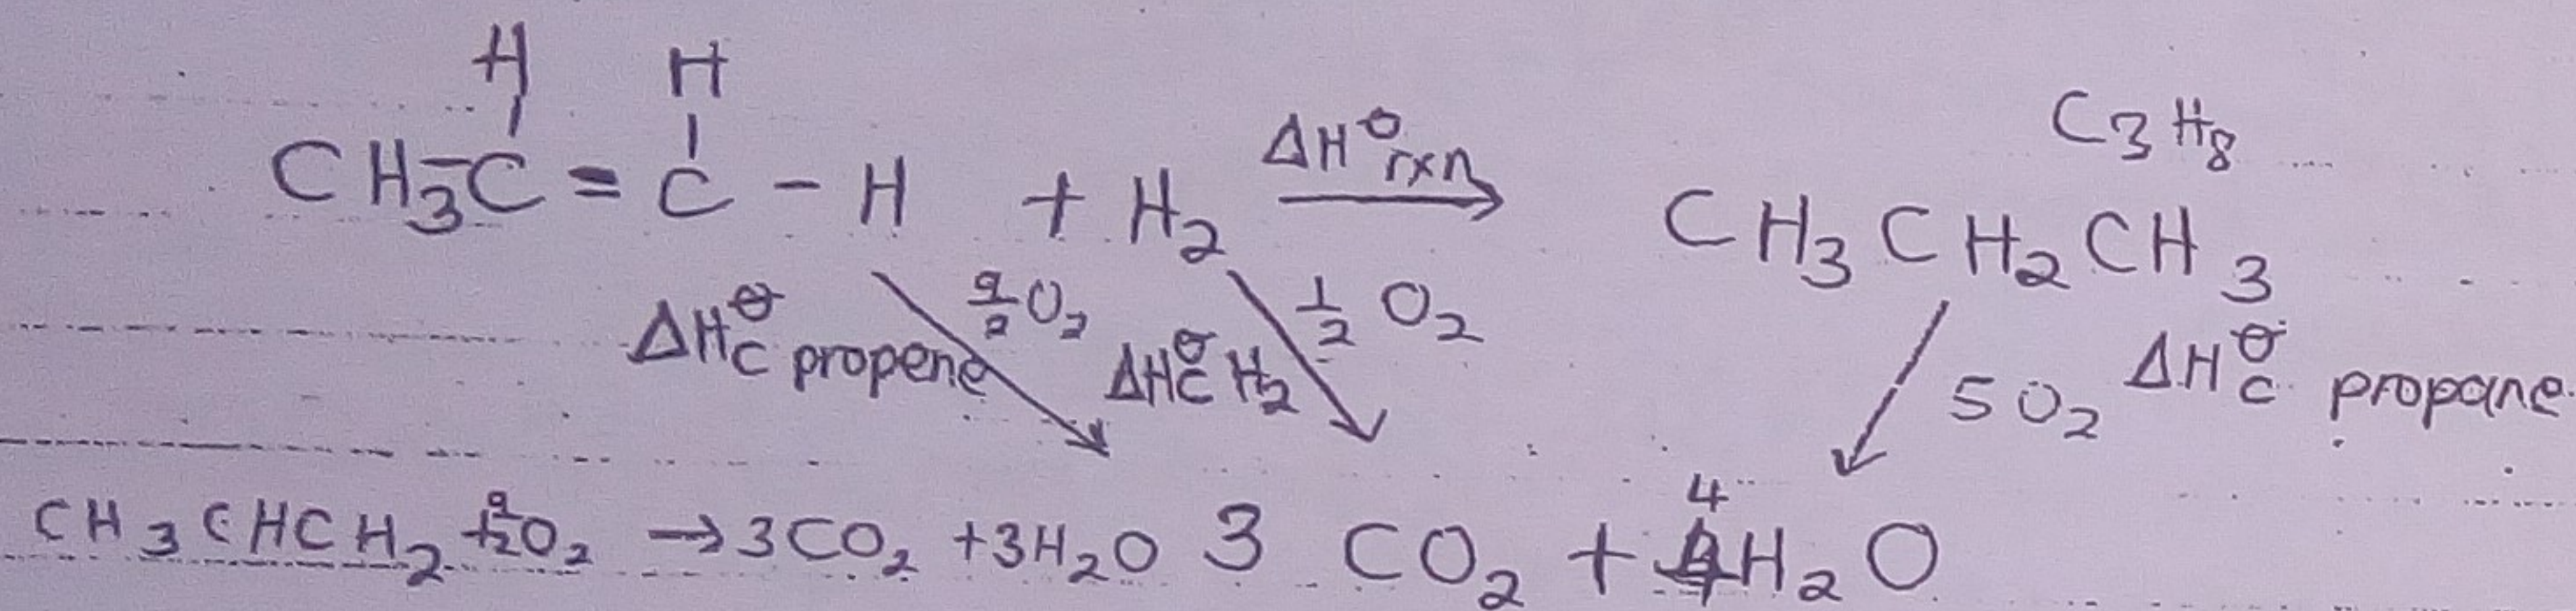 H H
C₃H₈
CH₃-C = C - H + H₂ ΔH⦵rxn → CH₃CH₂CH₃
ΔH⦵c propene 9/2 O₂ ΔH⦵c H₂ 1/2 O₂ 5O₂ ΔH⦵c propane
4
CH₃CHCH₂ + 9/2 O₂ → 3CO₂ + 3H₂O 3 CO₂ + 4H₂O